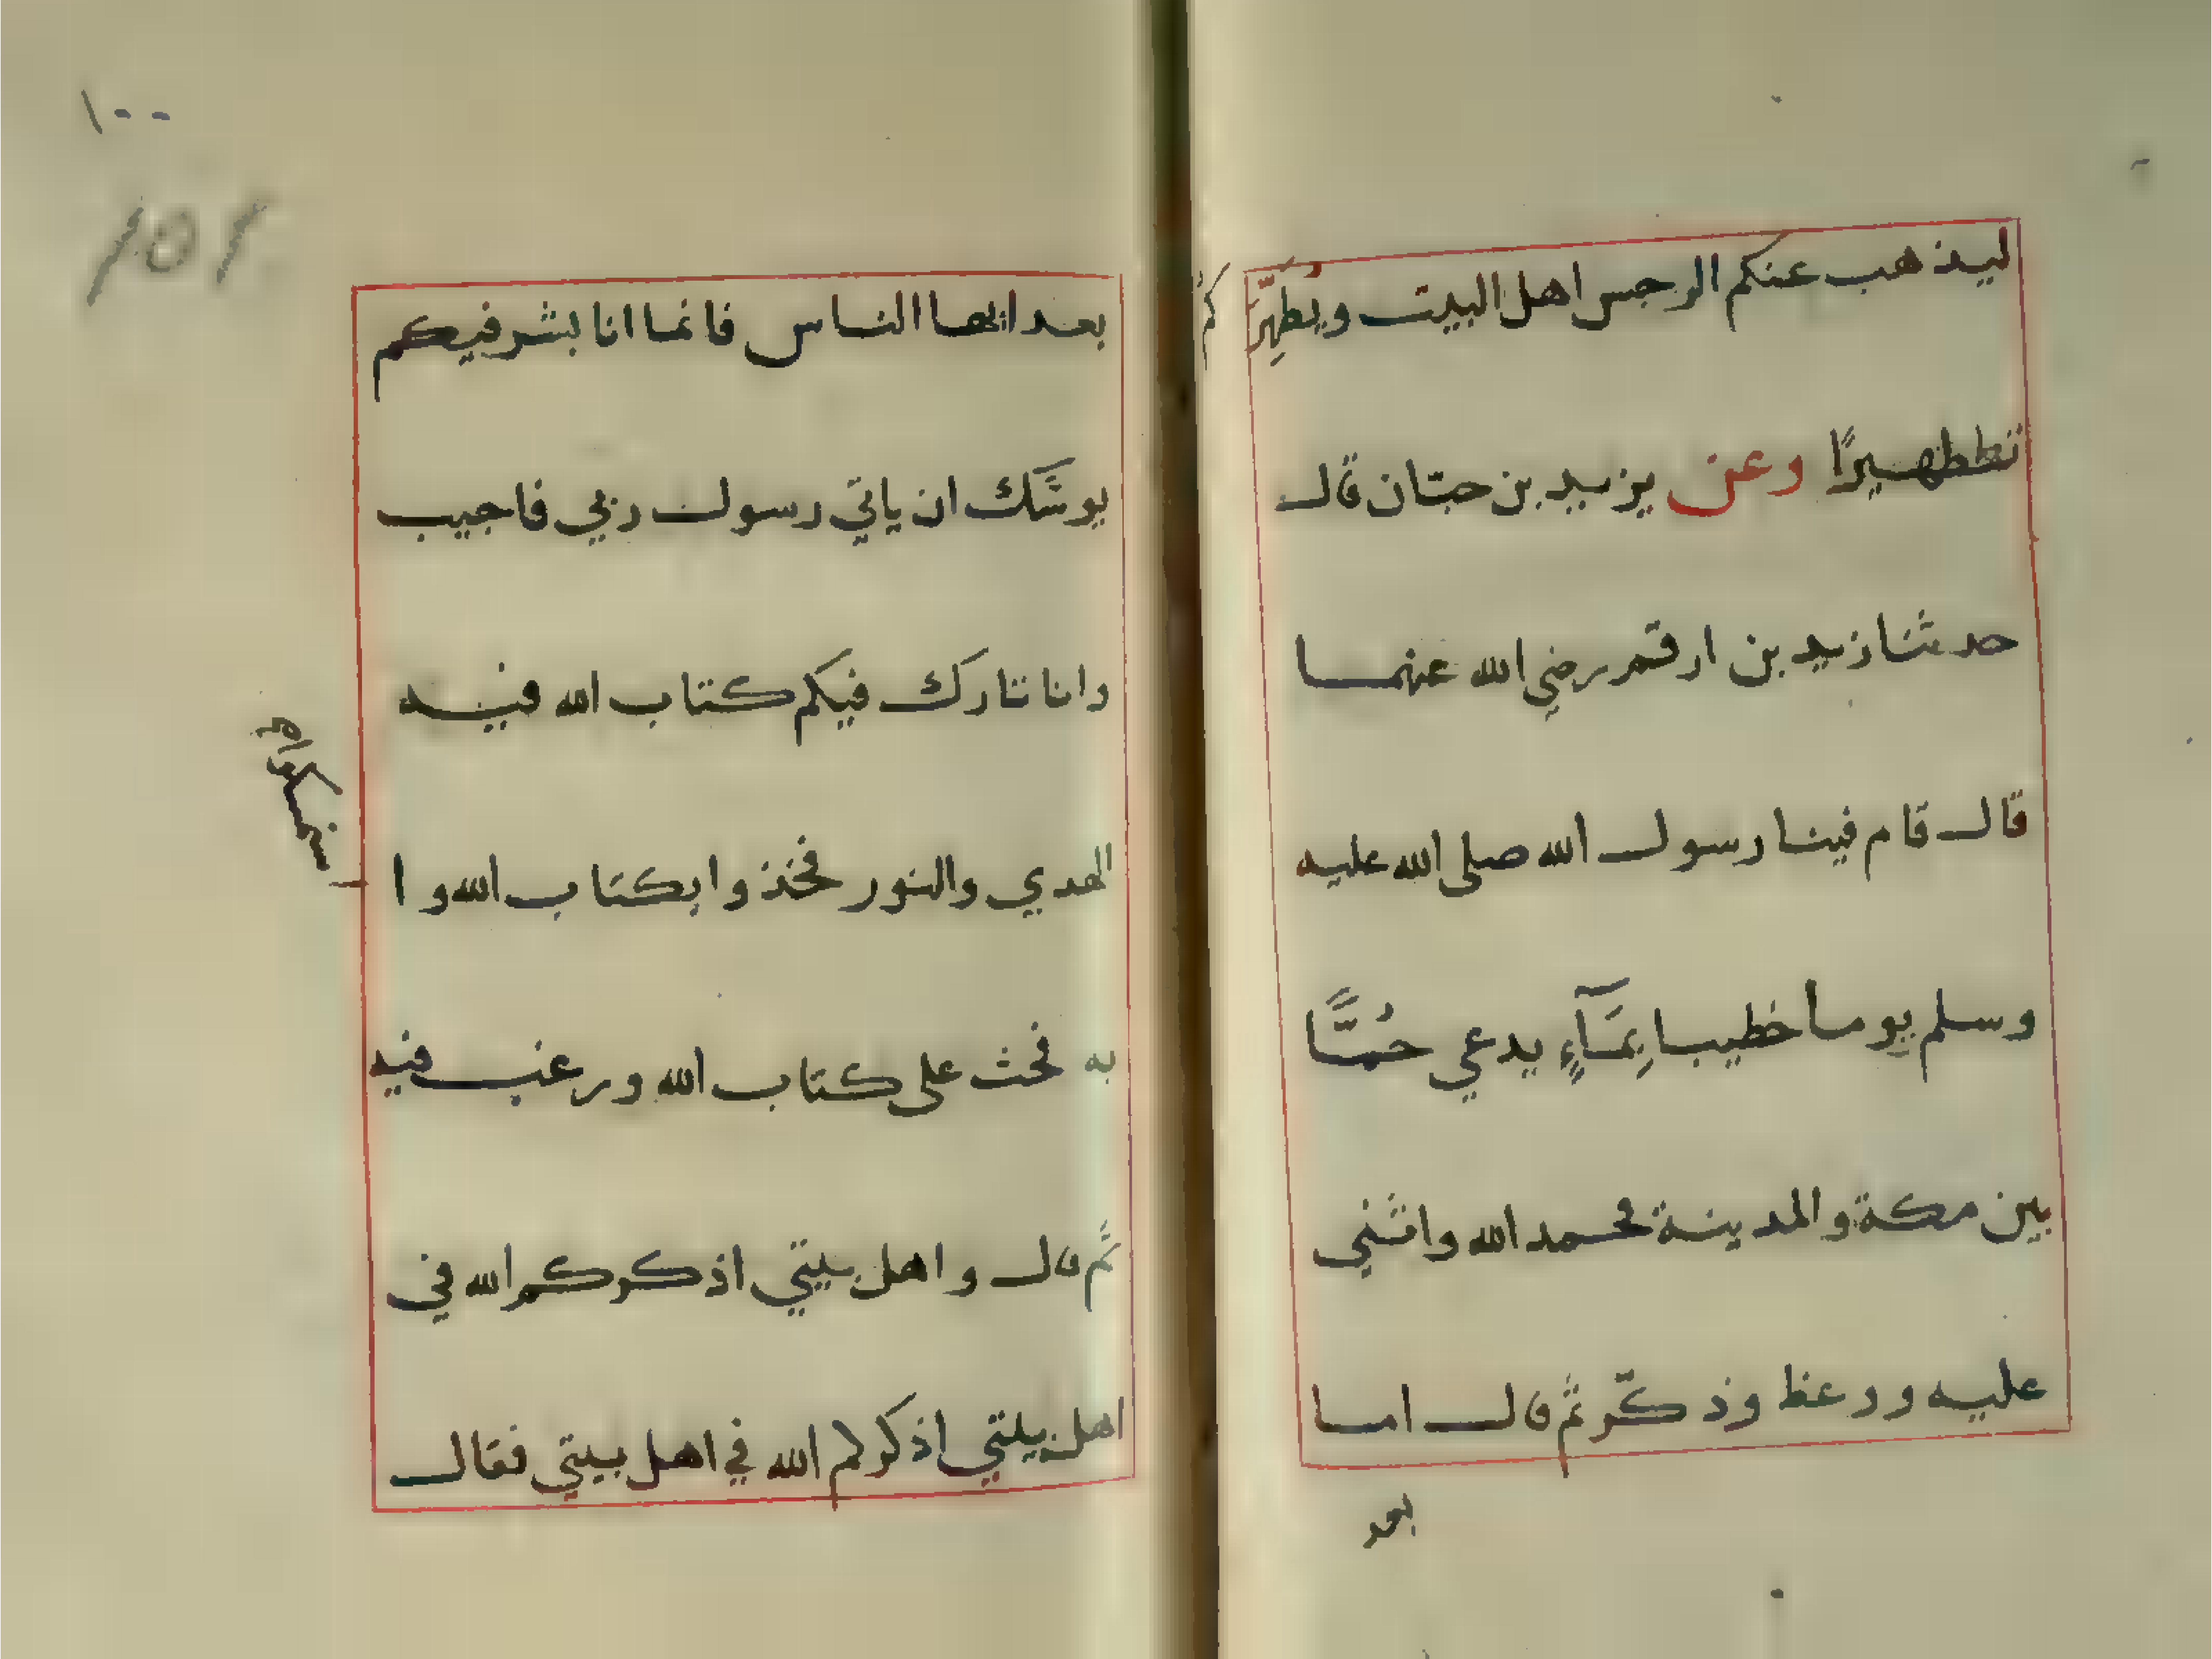 ليذهب عنكم الرجس اهل البيت ويُطَهِّرَكُم
تططهيرًا وعن يزيد بن حبّان قال
حدثنا زيد بن ارقم رضي الله عنهما
قال قام فينا رسول الله صلى الله عليه
وسلم يوما خطيبا بِمَآءٍ يدعي خُمًّا
بين مكة والمدينة فحمد الله واثني
عليه ووعظ وذكّر ثم قال اما
بعد
١٠٠
101
بعد ايها الناس فانما انا بشر فيكم
يوشَك ان ياتي رسول ربي فاجيب
وانا تارك فيكم كتاب الله فيه
الهدي والنور فخذوا بكتاب الله وا
ستمسكوا
به فحث على كتاب الله ورغب فيه
ثم قال واهل بيتي اذكركم الله في
اهل بيتي اذكركم الله في اهل بيتي فقال